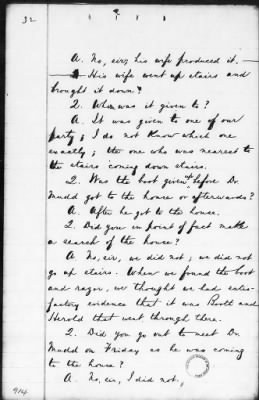 32
A. No, sir; his wife produced it. —
— A His wife went up stairs and
brought it down?
Q. Whom was it given to?
A. It was given to one of our
party; I do not know which one
exactly; the one who was nearest to
the stairs coming down stairs.
Q. Was the boot given before Dr
Mudd got to the house or afterwards?
A. After he got to the house.
Q. Did you in point of fact make
a search of the house?
A. No, sir, we did not; we did not
go up stairs. When we found the boot
and razor, we thought we had satis-
factory evidence that it was Booth and
Herold that went through there.
Q. Did you go out to meet Dr
Mudd on Friday as he was coming
to the house?
A. No, sir, I did not.
914